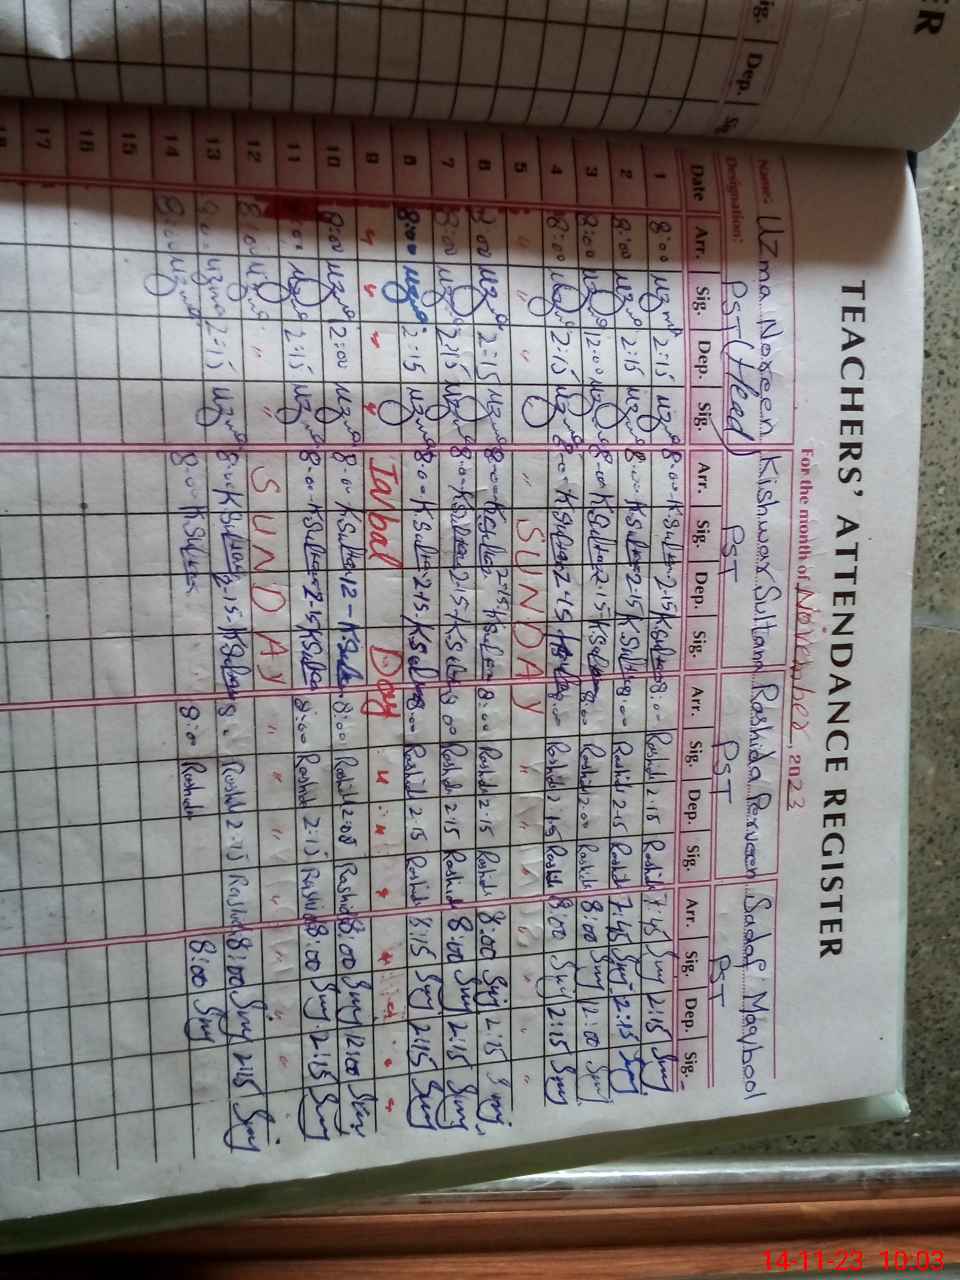 ER
ig. Dep. Sig
TEACHERS' ATTENDANCE REGISTER
For the month of November, 2023
Name: Uzma Noreen Kishwar Sultana Rashida Parveen Sadaf Maqbool
Designation: PST (Head) PST PST PST
Date Arr. Sig. Dep. Sig. Arr. Sig. Dep. Sig. Arr. Sig. Dep. Sig. Arr. Sig. Dep. Sig.
1 8:00 Uzma 2:15 Uzma 8:00 KSultana 2-15 KSultana 8:00 Rashida 2:15 Rashida 7:45 2:15
2 8:00 Uzma 2:15 Uzma 8:00 KSultana 2-15 KSultana 8:00 Rashida 2:15 Rashida 7:45 2:15
3 8:00 Uzma 12:00 Uzma 8:00 KSultana KSultana 8:00 Rashida Rashida 8:00 12:00
4 8:00 Uzma 2:15 Uzma 8:00 KSultana 2-15 KSultana 8:00 Rashida 2:15 Rashida 8:00 2:15
5 " " " SUNDAY " " " " "
6 8:00 Uzma 2:15 Uzma 8:00 KSultana 2-15 KSultana 8:00 Rashida 2:15 Rashida 8:00 2:15
7 8:00 Uzma 2:15 Uzma 8:00 KSultana 2-15 KSultana 8:00 Rashida 2:15 Rashida 8:00 2:15
8 8:00 Uzma 2:15 Uzma 8:00 KSultana 2-15 KSultana 8:00 Rashida 2:15 Rashida 8:15 2:15
9 " " " " Iqbal Day " " " "
10 8:00 Uzma 12:00 Uzma 8:00 KSultana 12- KSultana 8:00 Rashida Rashida 8:00 12:00
11 8:00 Uzma 2:15 Uzma 8:00 KSultana 2-15 KSultana 8:00 Rashida 2:15 Rashida 8:00 2:15
12 " " SUNDAY " " " " " "
13 8:00 Uzma 2:15 Uzma 8:00 KSultana 2-15 KSultana 8:00 Rashida 2:15 Rashida 8:00 2:15
14 8:00 Uzma 8:00 KSultana 8:00 Rashida 8:00
15
16
17
18
14-11-23 10:03